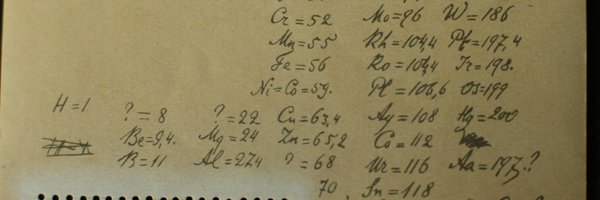 Cr=52 Mo=96 W=186
Mn=55 Rh=104,4 Pt=197,4
Fe=56 Ro=104,4 Ir=198.
Ni=Co=59. Pl=106,6 Os=199
H=1 ?=8 ?=22 Cu=63,4 Ag=108 Hg=200
Be=9,4. Mg=24 Zn=65,2 Cd=112
B=11 Al=27,4 ?=68 Ur=116 Au=197?
70 Sn=118